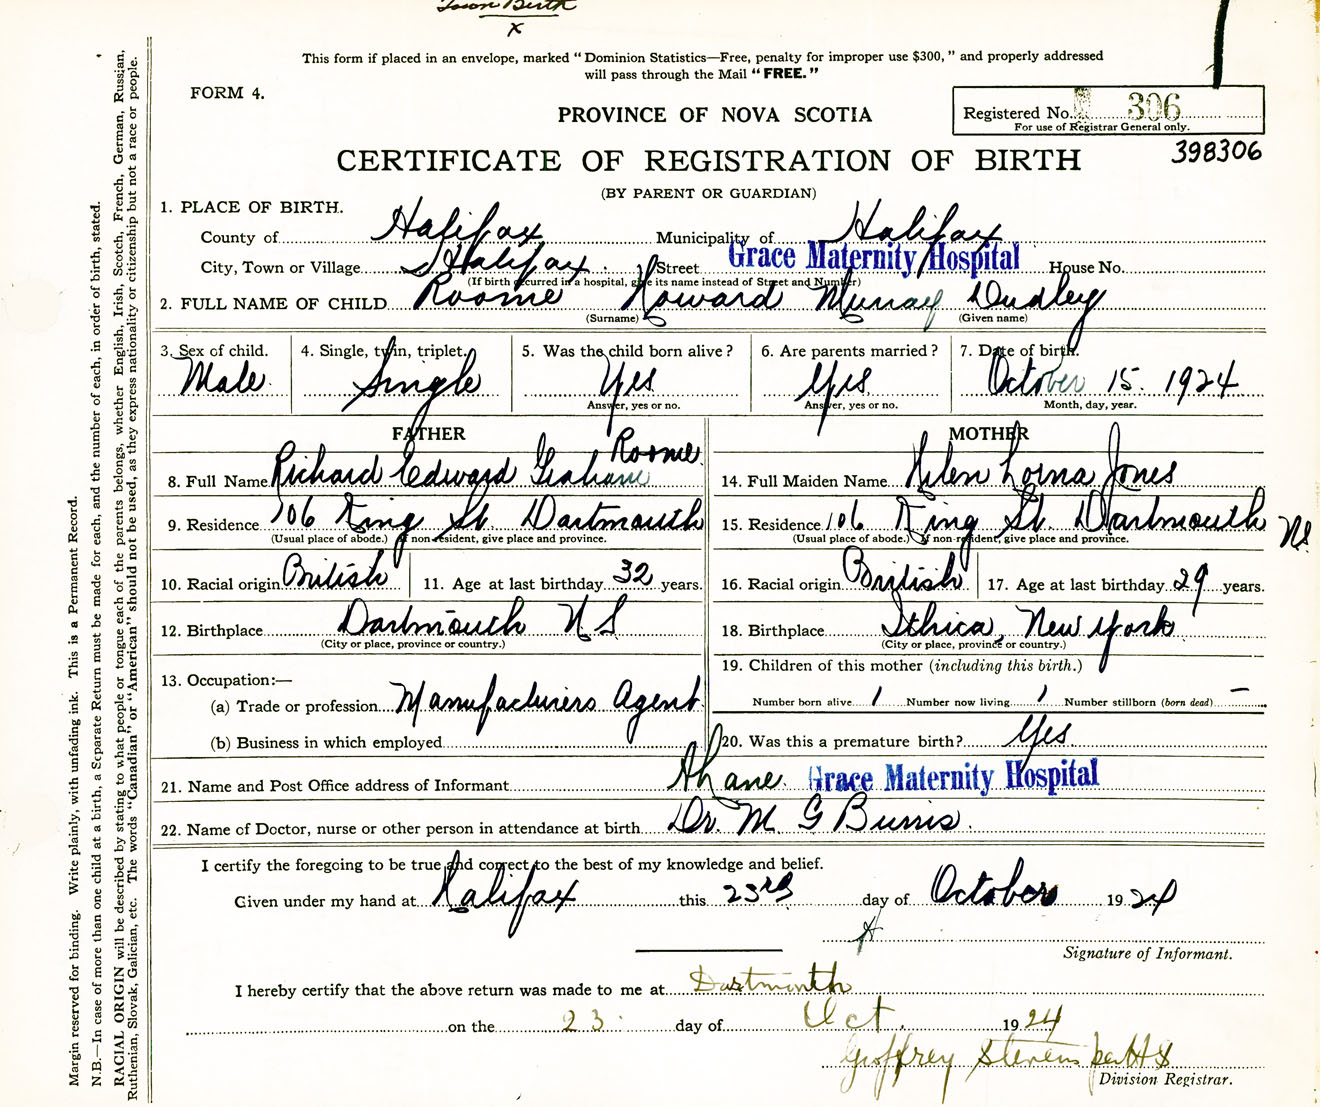 Town Birth
x
This form if placed in an envelope, marked “Dominion Statistics—Free, penalty for improper use $300,” and properly addressed
will pass through the Mail “FREE.”
FORM 4.
PROVINCE OF NOVA SCOTIA
Registered No. 306
For use of Registrar General only.
398306
CERTIFICATE OF REGISTRATION OF BIRTH
(BY PARENT OR GUARDIAN)
1. PLACE OF BIRTH.
County of Halifax Municipality of Halifax
City, Town or Village Halifax Street Grace Maternity Hospital House No.
(If birth occurred in a hospital, give its name instead of Street and Number)
2. FULL NAME OF CHILD Roome Howard Murray Dudley
(Surname) (Given name)
3. Sex of child. 4. Single, twin, triplet. 5. Was the child born alive? 6. Are parents married? 7. Date of birth.
Male Single Yes Yes October 15. 1924
Answer, yes or no. Answer, yes or no. Month, day, year.
FATHER
8. Full Name Richard Edward Graham Roome
9. Residence 106 King St. Dartmouth
(Usual place of abode.) If non-resident, give place and province.
10. Racial origin British 11. Age at last birthday 32 years.
12. Birthplace Dartmouth N S
(City or place, province or country.)
13. Occupation:—
(a) Trade or profession Manufacturers Agent
(b) Business in which employed
MOTHER
14. Full Maiden Name Helen Lorna Jones
15. Residence 106 King St. Dartmouth NS
(Usual place of abode.) If non-resident, give place and province.
16. Racial origin British 17. Age at last birthday 29 years.
18. Birthplace Ithica, New York
(City or place, province or country.)
19. Children of this mother (including this birth.)
Number born alive 1 Number now living 1 Number stillborn (born dead) —
20. Was this a premature birth? Yes
21. Name and Post Office address of Informant Grace Maternity Hospital
22. Name of Doctor, nurse or other person in attendance at birth Dr. M G Burris.
I certify the foregoing to be true and correct to the best of my knowledge and belief.
Given under my hand at Halifax this 23rd day of October 1924
Signature of Informant.
I hereby certify that the above return was made to me at Dartmouth
on the 23 day of Oct. 1924
Geoffrey Stevens per H S
Division Registrar.
Margin reserved for binding. Write plainly, with unfading ink. This is a Permanent Record.
N.B.—In case of more than one child at a birth, a Separate Return must be made for each, and the number of each, in order of birth, stated.
RACIAL ORIGIN will be described by stating to what people or tongue each of the parents belongs, whether English, Irish, Scotch, French, German, Russian,
Ruthenian, Slovak, Galician, etc. The words “Canadian” or “American” should not be used, as they express nationality or citizenship but not a race or people.